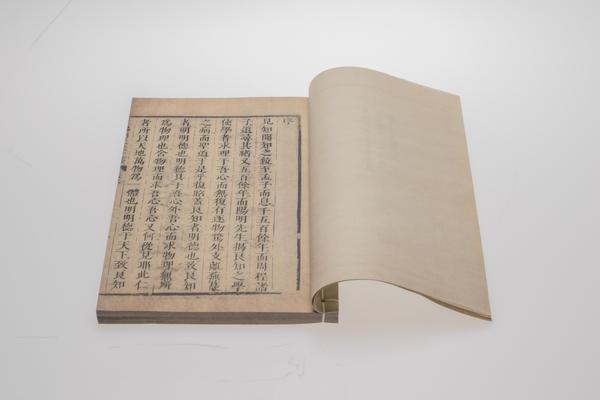 序
見知聞知之統至孟子而息千五百餘年而周程諸
子追尋其緒又五百餘年而陽明先生揭良知之學
使學者求理于吾心而無復有逐物騖外支離蕪蔓
之病而聖道于是乎復昭蓋良知者明德也致良知
者明明德也明德具于吾心外吾心而求物理無所
爲物理也舍物理而求吾心吾心又何從見耶此仁
者所以天地萬物爲一體也明明德于天下致良知